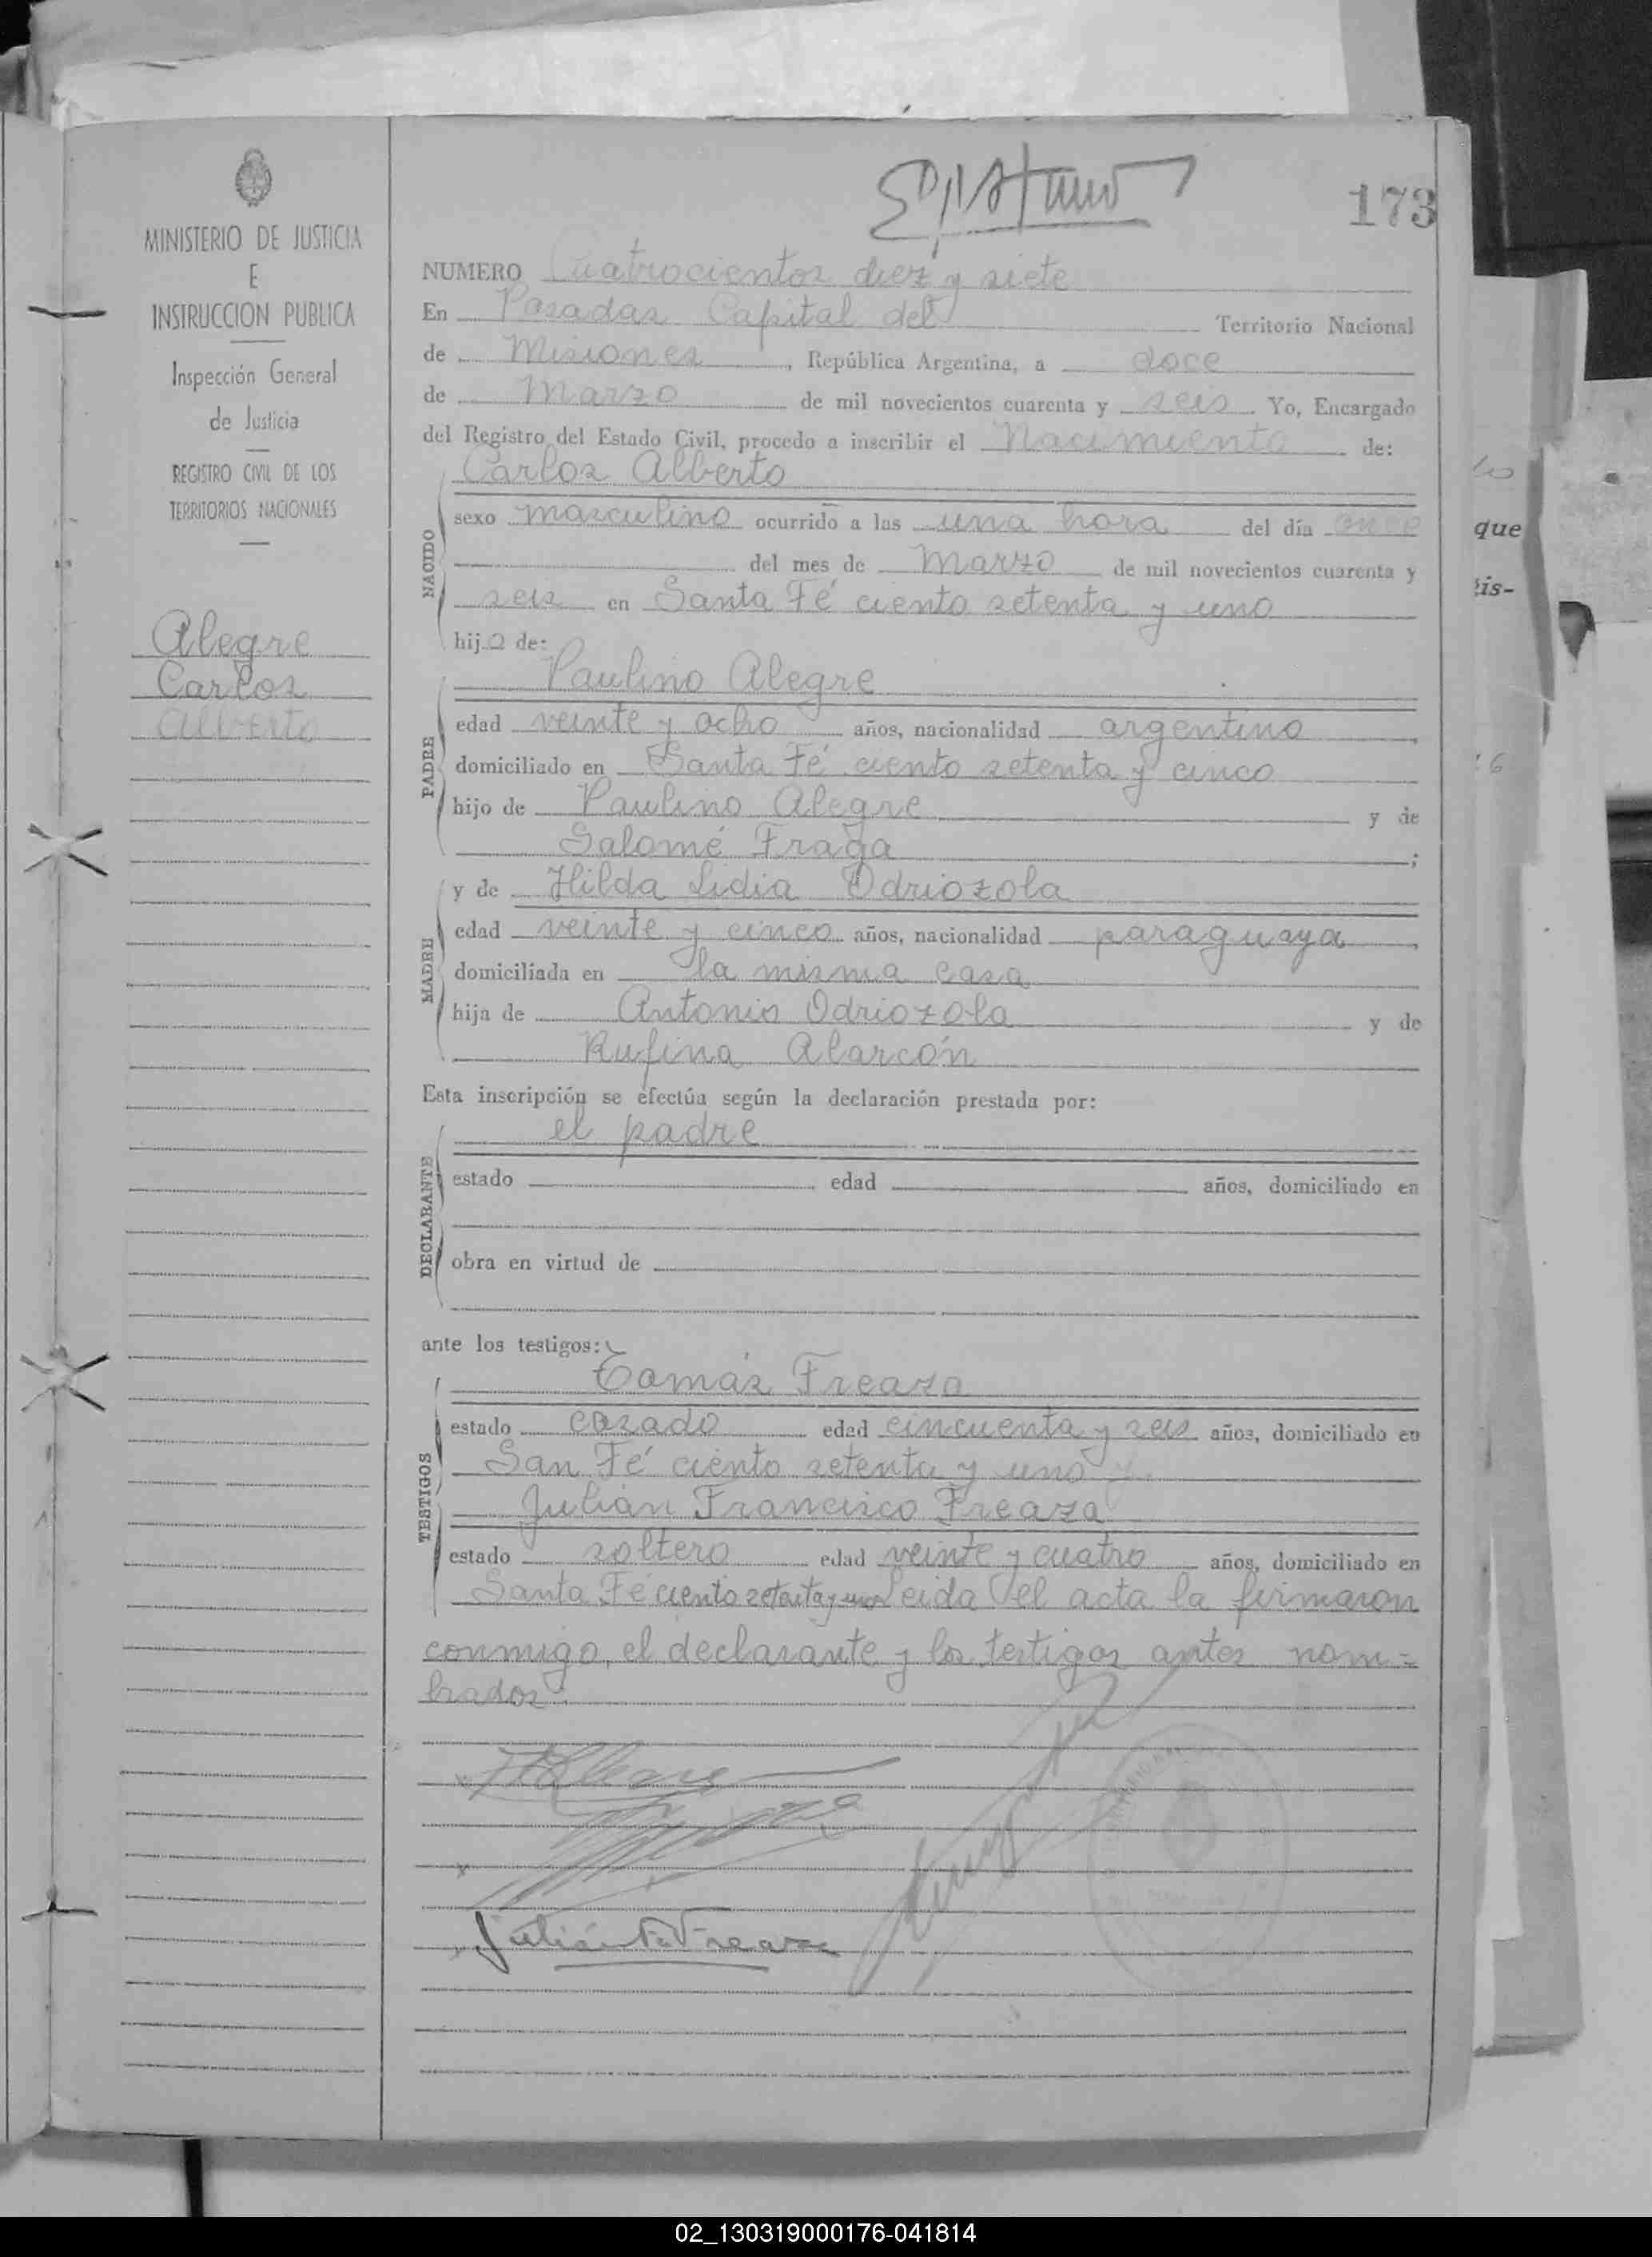 173
MINISTERIO DE JUSTICIA
E
INSTRUCCION PUBLICA
Inspección General
de Justicia
REGISTRO CIVIL DE LOS
TERRITORIOS NACIONALES
Alegre
Carlos
Alberto
NUMERO Cuatrocientos diez y siete
En Posadas Capital del Territorio Nacional
de Misiones, República Argentina, a doce
de Marzo de mil novecientos cuarenta y seis. Yo, Encargado
del Registro del Estado Civil, procedo a inscribir el Nacimiento de:
NACIDO
Carlos Alberto
sexo masculino ocurrido a las una hora del día once
del mes de Marzo de mil novecientos cuarenta y
seis en Santa Fé ciento setenta y uno
hijo de:
PADRE
Paulino Alegre
edad veinte y ocho años, nacionalidad argentino,
domiciliado en Santa Fé ciento setenta y cinco
hijo de Paulino Alegre y de
Salomé Fraga;
MADRE
y de Hilda Lidia Odriozola
edad veinte y cinco años, nacionalidad paraguaya,
domiciliada en la misma casa
hija de Antonio Odriozola y de
Rufina Alarcón
Esta inscripción se efectúa según la declaración prestada por:
DECLARANTE
el padre
estado edad años, domiciliado en
obra en virtud de
ante los testigos:
TESTIGOS
Tomás Freaza
estado casado edad cincuenta y seis años, domiciliado en
San Fé ciento setenta y uno y
Julián Francisco Freaza
estado soltero edad veinte y cuatro años, domiciliado en
Santa Fé ciento setenta y uno Leida el acta la firmaron
conmigo, el declarante y los testigos antes nom=
brados
Julián F. Freaza
que
tis-
02_130319000176-041814